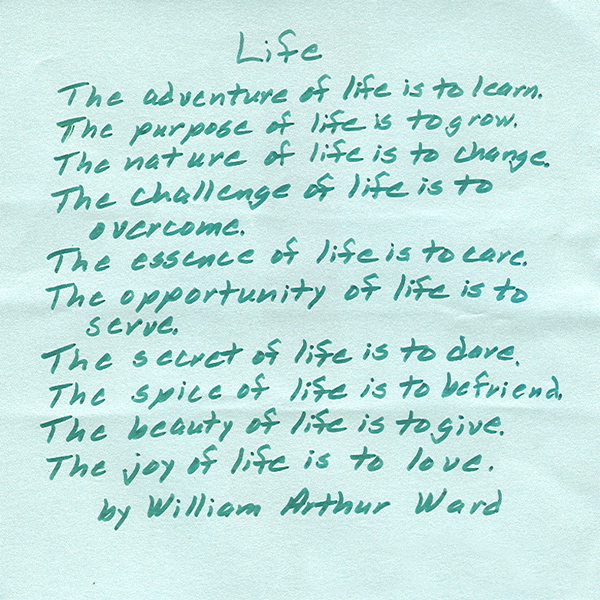 Life
The adventure of life is to learn.
The purpose of life is to grow.
The nature of life is to change.
The challenge of life is to
overcome.
The essence of life is to care.
The opportunity of life is to
serve.
The secret of life is to dare.
The spice of life is to befriend.
The beauty of life is to give.
The joy of life is to love.
by William Arthur Ward